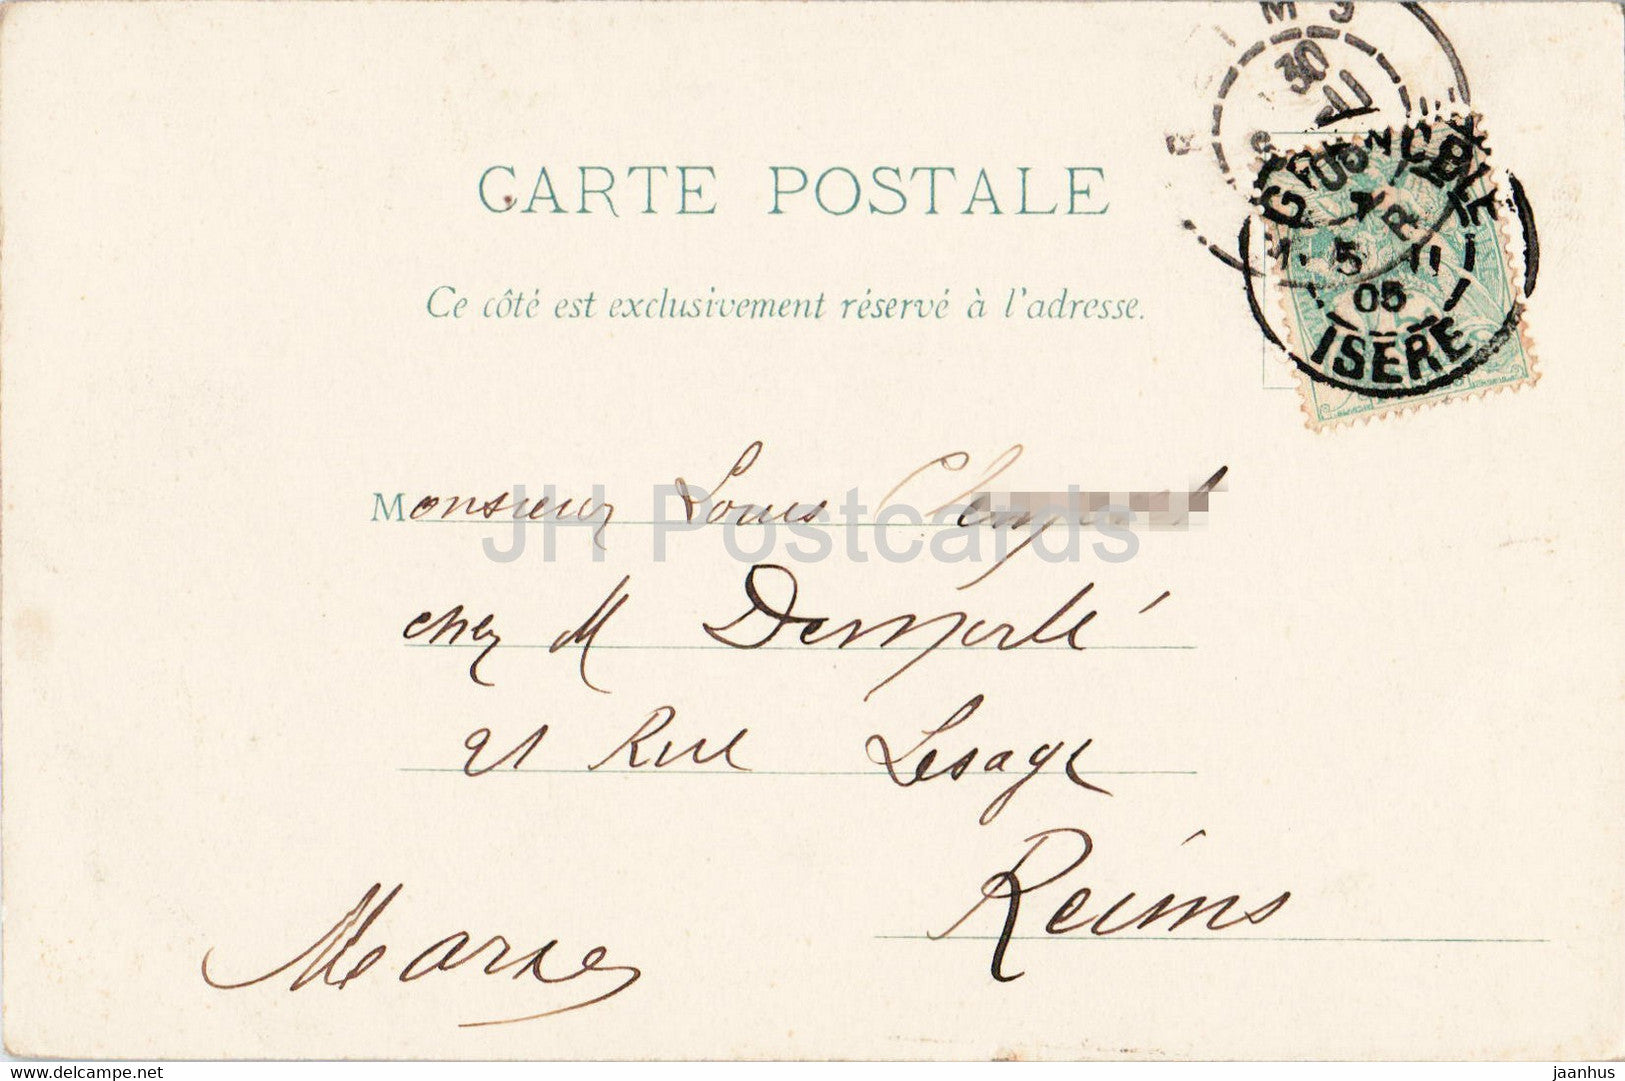 CARTE POSTALE
Ce côté est exclusivement réservé à l'adresse.
GRENOBLE
5 11
05
ISÈRE
30
Monsieur Louis
JH Postcards
chez M Demorlé
21 Rue Lesage
Reims
Marne
delcampe.net
jaanhus